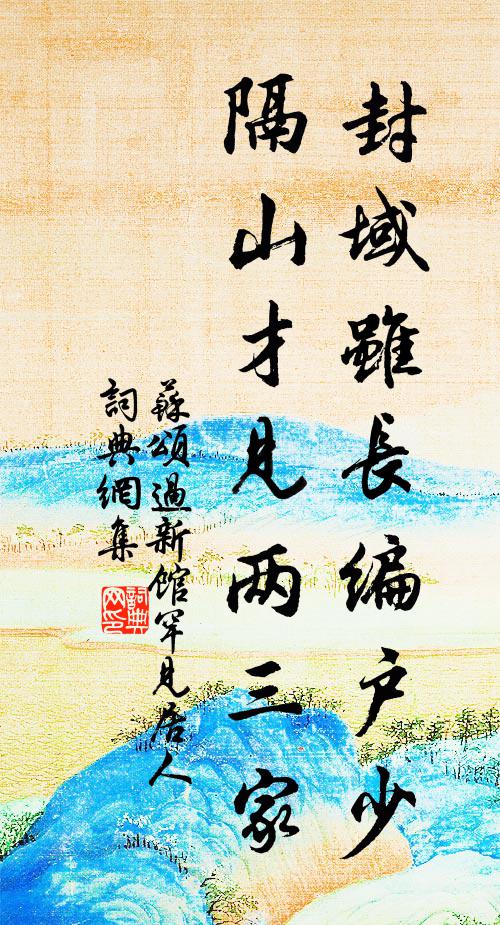 封域雖長編户少
隔山才見两三家
蘇頌過新館罕見居人
詞典網集
詞典
网印